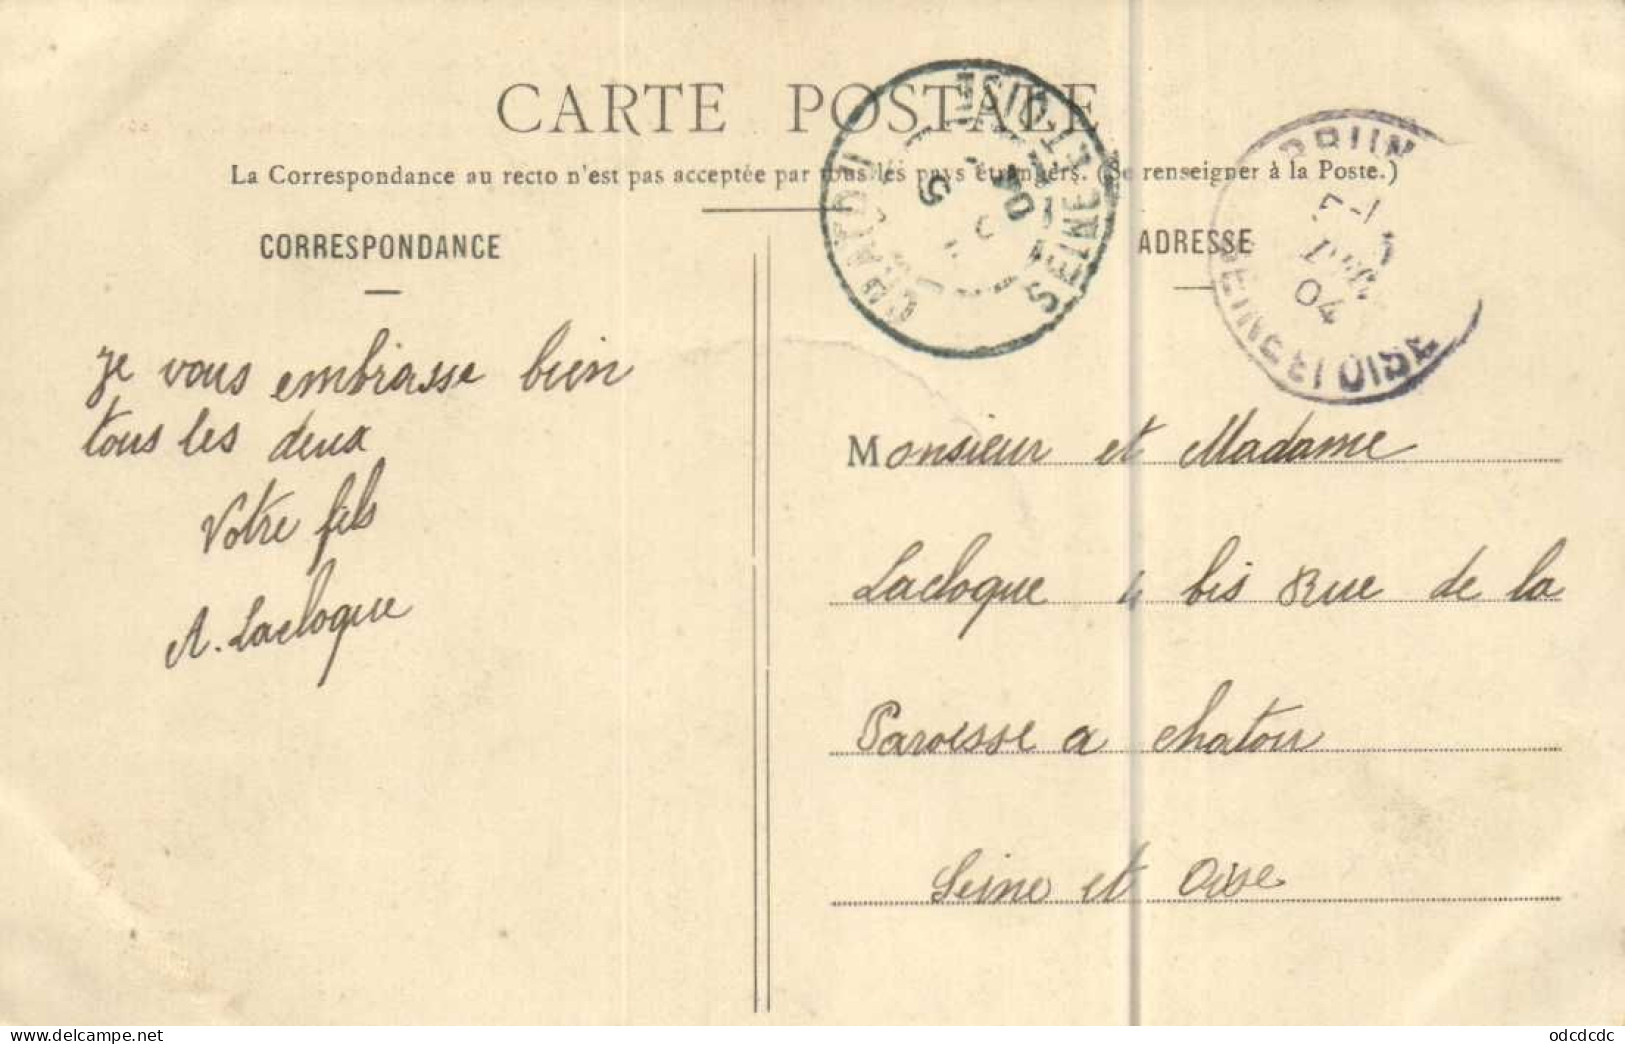 CARTE POSTALE
La Correspondance au recto n'est pas acceptée par tous les pays étrangers. (Se renseigner à la Poste.)
CORRESPONDANCE
ADRESSE
SEINE-ET-OISE
04
SEINE ET OISE
Je vous embrasse bien
tous les deux
Votre fils
A. Laclogue
Monsieur et Madame
Laclogue 4 bis Rue de la
Paroisse a chatou
Seine et Oise
odcdcdc